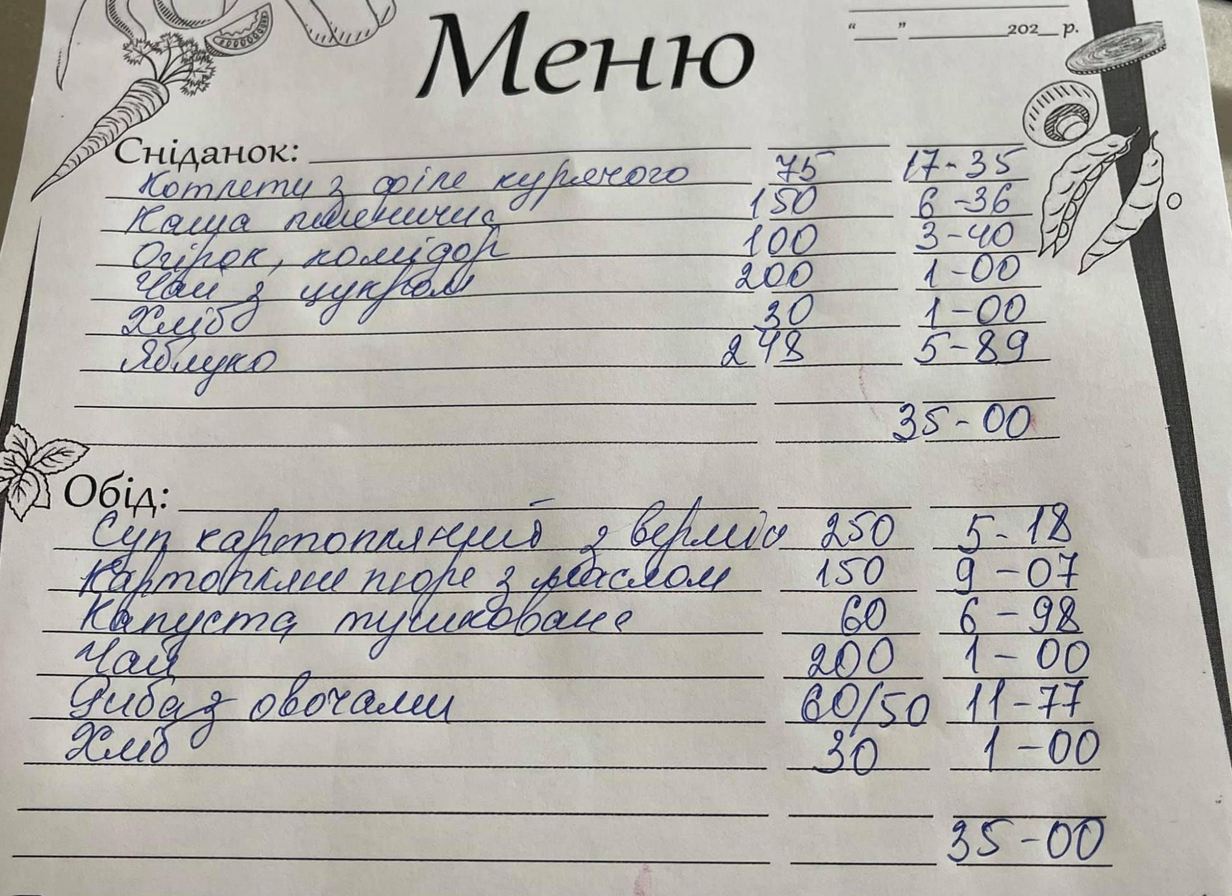 Меню
“__” ________202__ р.
Сніданок:
Котлети з філе курячого 75 17-35
Каша пшенична 150 6-36
Огірок, помідор 100 3-40
Чай з цукром 200 1-00
Хліб 30 1-00
Яблуко 248 5-89
35-00
Обід:
Суп картопляний з верміш 250 5-18
Картопляне пюре з маслом 150 9-07
Капуста тушкована 60 6-98
Чай 200 1-00
Риба з овочами 60/50 11-77
Хліб 30 1-00
35-00